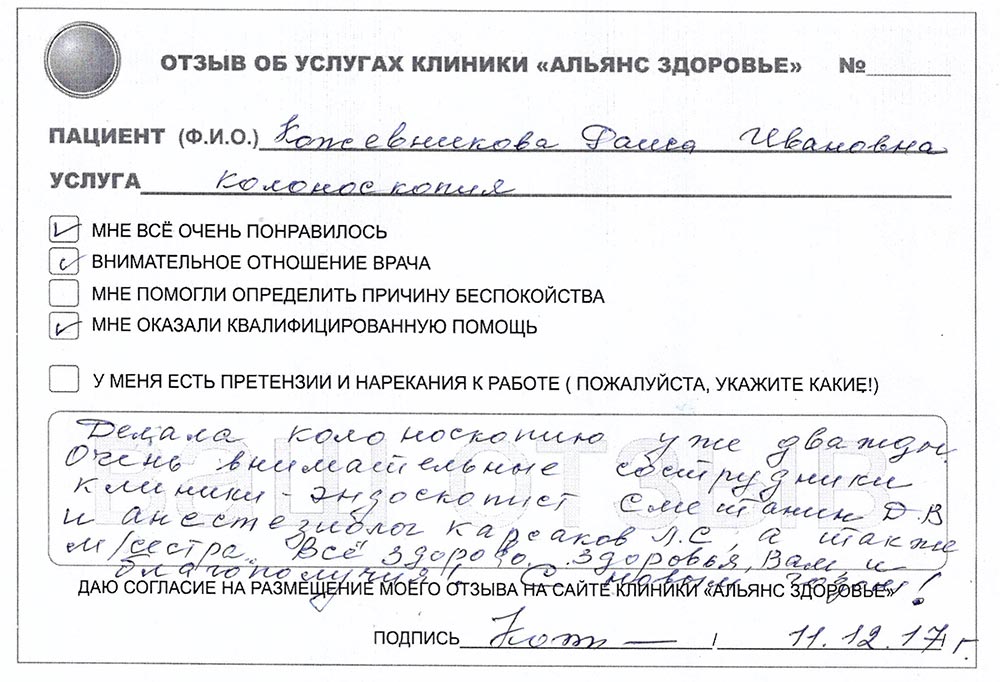 ОТЗЫВ ОБ УСЛУГАХ КЛИНИКИ «АЛЬЯНС ЗДОРОВЬЕ» №
ПАЦИЕНТ (Ф.И.О.) Кожевникова Раиса Ивановна
УСЛУГА колоноскопия
МНЕ ВСЁ ОЧЕНЬ ПОНРАВИЛОСЬ
ВНИМАТЕЛЬНОЕ ОТНОШЕНИЕ ВРАЧА
МНЕ ПОМОГЛИ ОПРЕДЕЛИТЬ ПРИЧИНУ БЕСПОКОЙСТВА
МНЕ ОКАЗАЛИ КВАЛИФИЦИРОВАННУЮ ПОМОЩЬ
У МЕНЯ ЕСТЬ ПРЕТЕНЗИИ И НАРЕКАНИЯ К РАБОТЕ ( ПОЖАЛУЙСТА, УКАЖИТЕ КАКИЕ!)
ВАШ ОТЗЫВ
Делала колоноскопию уже дважды.
Очень внимательные сотрудники
клиники - эндоскопист Сметанин Д.В
и анестезиолог Карсаков Л.С, а также
м/сестра. Всё здорово. Здоровья, Вам и
благополучия! С новым годом!
ДАЮ СОГЛАСИЕ НА РАЗМЕЩЕНИЕ МОЕГО ОТЗЫВА НА САЙТЕ КЛИНИКИ «АЛЬЯНС ЗДОРОВЬЕ»
ПОДПИСЬ Кож / 11.12.17 г.